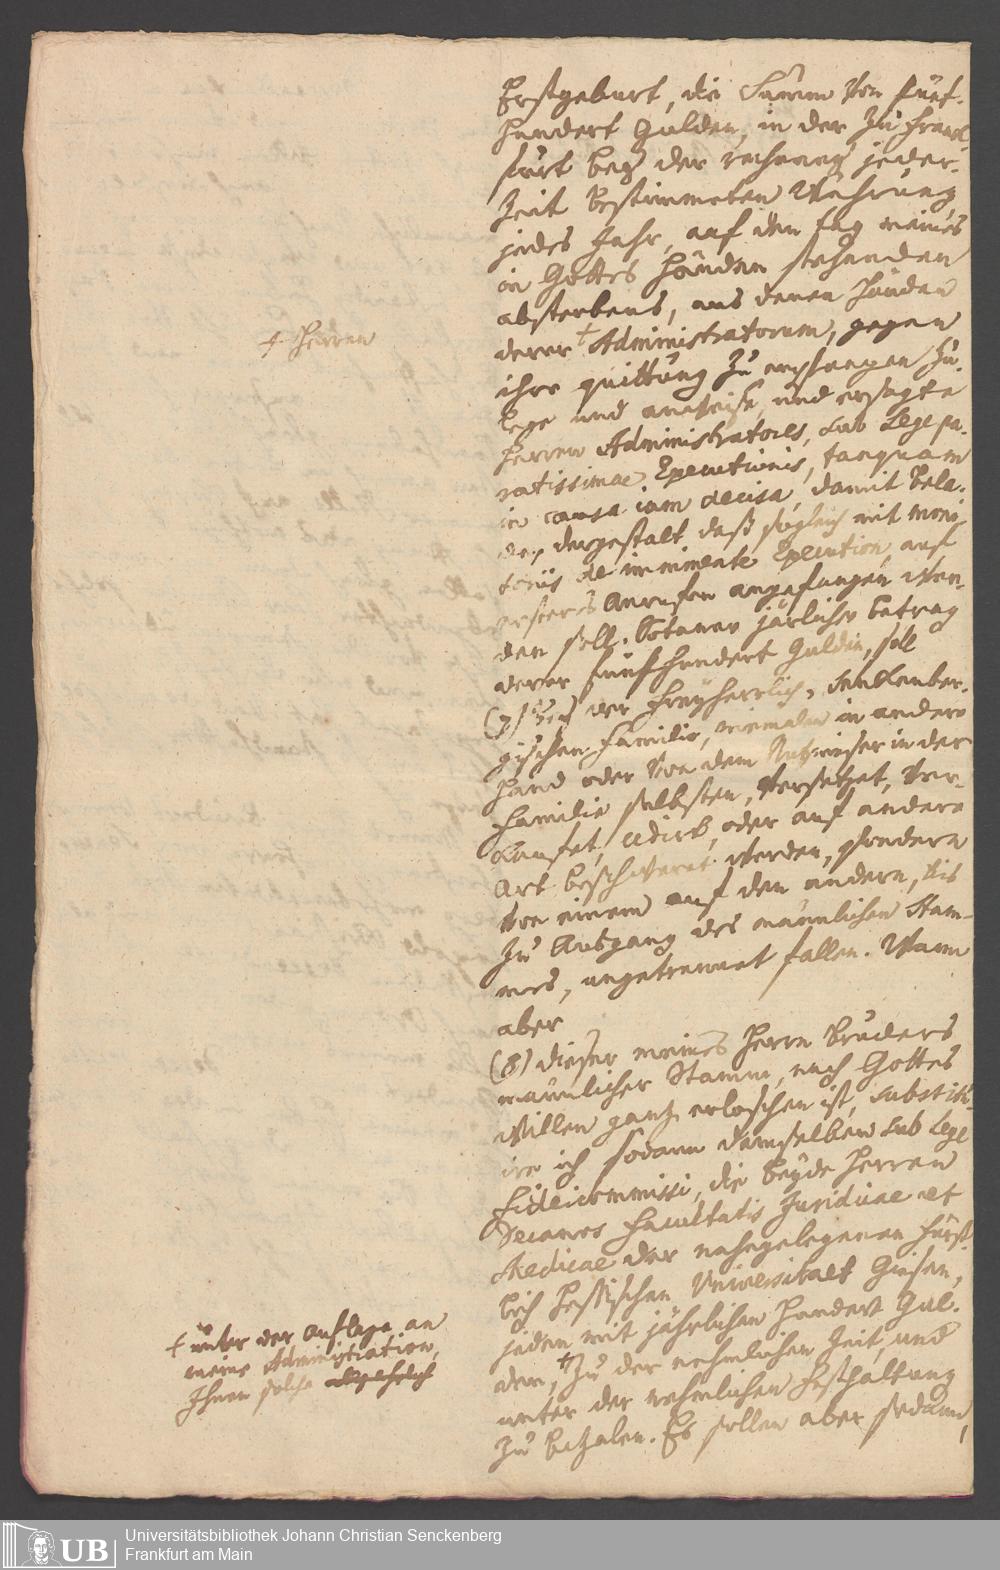 Erstgeburt, die Summ von fünf-
hundert Gulden, in der zu Franck-
furt bey der rechnung jeder-
zeit bestimmeten Währung
jedes Jahr, auf den tag meines
in Gottes Händen stehenden
absterbens, aus denen Händen
derer + Administratorum, gegen
ihre quittung zu empfangen zu-
lege und anweise, und ersagte
Herren Administratores, sub Lege pa-
ratissimae Executionis, tanquam
in causa iam decisa, damit bela-
de, dergestalt daß sogleich mit moni-
toriis de imminente Execution, auf
ersteres Anrufen angefangen wer-
den soll. Sotaner järlicher betrag
derer fünfhundert Gulden, soll
(7) Bey der Freyherrlich, Senckenber-
gischen Familie, niemalen in andere
Hand oder von dem Nutznieser in der
Familie selbsten, versetzet, ver-
kaufet, cedirt, oder auf andere
Art beschweret werden, sondern
von einem auf den andern, bis
zu Abgang des männlichen Stam-
mes, ungetrennet fallen. Wann
aber
(8) dieser meines Herrn Bruders
männlicher Stamm, nach Gottes
Willen ganz erloschen ist, substitu-
ire ich sodann demselben sub Lege
Fideicommissi, die beyde Herren
Decanos Facultatis Juridicae et
Medicae der nahegelegenen Fürst-
lich Hessischen Universitaet Giesen,
jeden mit jährlichen hundert Gul-
den, + zu der nehmlichen Zeit, und
unter der nehmlichen Festhaltung
zu bezalen. Es sollen aber sodann,
+ Herren
+ unter der Auflage an
meine Administration,
Ihnen solche
Universitätsbibliothek Johann Christian Senckenberg
Frankfurt am Main
UB